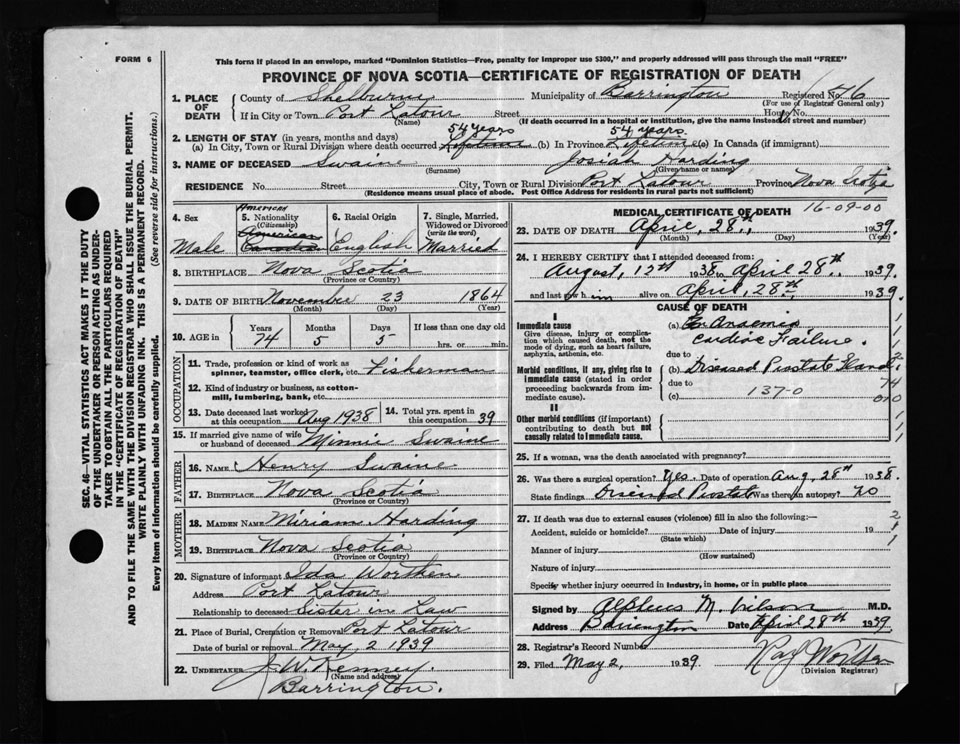 FORM 6
This form if placed in an envelope, marked "Dominion Statistics—Free, penalty for improper use $300," and properly addressed will pass through the mail "FREE"
PROVINCE OF NOVA SCOTIA—CERTIFICATE OF REGISTRATION OF DEATH
1. PLACE OF DEATH { County of Shelburne Municipality of Barrington Registered No. 46
(For use of Registrar General only)
If in City or Town Port Latour Street House No.
(Name) (If death occurred in a hospital or institution, give the name instead of street and number)
54 years 54 years
2. LENGTH OF STAY (in years, months and days)
(a) In City, Town or Rural Division where death occurred Lifetime (b) In Province Lifetime (c) In Canada (if immigrant)
3. NAME OF DECEASED Swaine Josiah Harding
(Surname) (Given name or names)
RESIDENCE No. Street City, Town or Rural Division Port Latour Province Nova Scotia
(Residence means usual place of abode. Post Office Address for residents in rural parts not sufficient)
4. Sex Male
5. Nationality (Citizenship) American American Canadian
6. Racial Origin English
7. Single, Married, Widowed or Divorced (write the word) Married
8. BIRTHPLACE Nova Scotia
(Province or Country)
9. DATE OF BIRTH November 23 1864
(Month) (Day) (Year)
10. AGE in { Years 74 Months 5 Days 5 If less than one day old hrs. or min.
OCCUPATION
11. Trade, profession or kind of work as spinner, teamster, office clerk, etc. Fisherman
12. Kind of industry or business, as cotton-mill, lumbering, bank, etc.
13. Date deceased last worked at this occupation Aug 1938
14. Total yrs. spent in this occupation 39
15. If married give name of wife or husband of deceased Minnie Swaine
FATHER
16. NAME Henry Swaine
17. BIRTHPLACE Nova Scotia
(Province or Country)
MOTHER
18. MAIDEN NAME Miriam Harding
19. BIRTHPLACE Nova Scotia
(Province or Country)
20. Signature of informant Ida Worthen
Address Port Latour
Relationship to deceased Sister in Law
21. Place of Burial, Cremation or Removal Port Latour
Date of burial or removal May 2 1939
22. UNDERTAKER J. W. Kenney.
(Name and address)
Barrington.
MEDICAL CERTIFICATE OF DEATH 16-09-00
23. DATE OF DEATH April, 28th, 1939.
(Month) (Day) (Year)
24. I HEREBY CERTIFY that I attended deceased from:
August, 12th 1938 to April 28th, 1939.
and last saw him alive on April, 28th, 1939.
CAUSE OF DEATH
I
Immediate cause
Give disease, injury or complication which caused death, not the mode of dying, such as heart failure, asphyxia, asthenia, etc.
(a) Anaemia
Cardiac Failure.
due to
Morbid conditions, if any, giving rise to immediate cause (stated in order proceeding backwards from immediate cause).
(b) Diseased Prostate Gland.
due to
(c) 137-0
74
010
II
Other morbid conditions (if important) contributing to death but not causally related to immediate cause.
25. If a woman, was the death associated with pregnancy?
26. Was there a surgical operation? Yes. Date of operation Aug. 28th 1938.
State findings Diseased Prostate Was there an autopsy? no
27. If death was due to external causes (violence) fill in also the following:—
Accident, suicide or homicide? Date of injury 19
(State which)
Manner of injury
(How sustained)
Nature of injury
Specify whether injury occurred in industry, in home, or in public place
Signed by Alpheus M. Wilson M.D.
Address Barrington Date April 28th 1939
28. Registrar's Record Number
29. Filed May 2, 1939.
(Division Registrar)
SEC. 46—VITAL STATISTICS ACT MAKES IT THE DUTY
OF THE UNDERTAKER OR PERSON ACTING AS UNDER-
TAKER TO OBTAIN ALL THE PARTICULARS REQUIRED
IN THE "CERTIFICATE OF REGISTRATION OF DEATH"
AND TO FILE THE SAME WITH THE DIVISION REGISTRAR WHO SHALL ISSUE THE BURIAL PERMIT.
WRITE PLAINLY WITH UNFADING INK. THIS IS A PERMANENT RECORD.
Every item of Information should be carefully supplied. (See reverse side for instructions.)